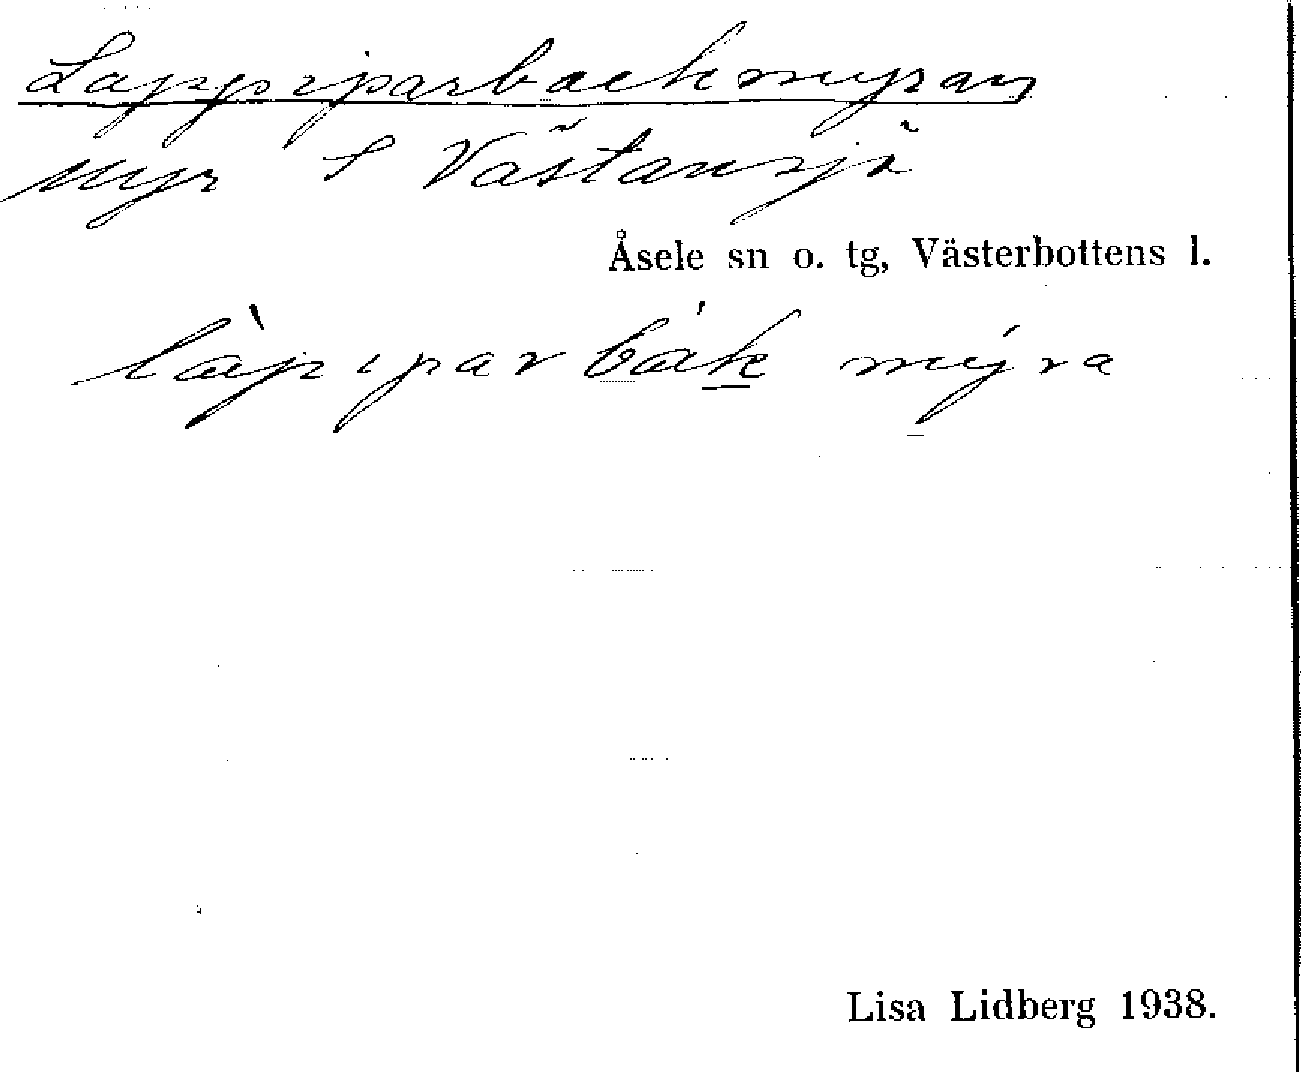 Lappiparbackmyran
Myr S Västansjö
Åsele sn o. tg, Västerbottens l.
làpıparbák mýra
Lisa Lidberg 1938.